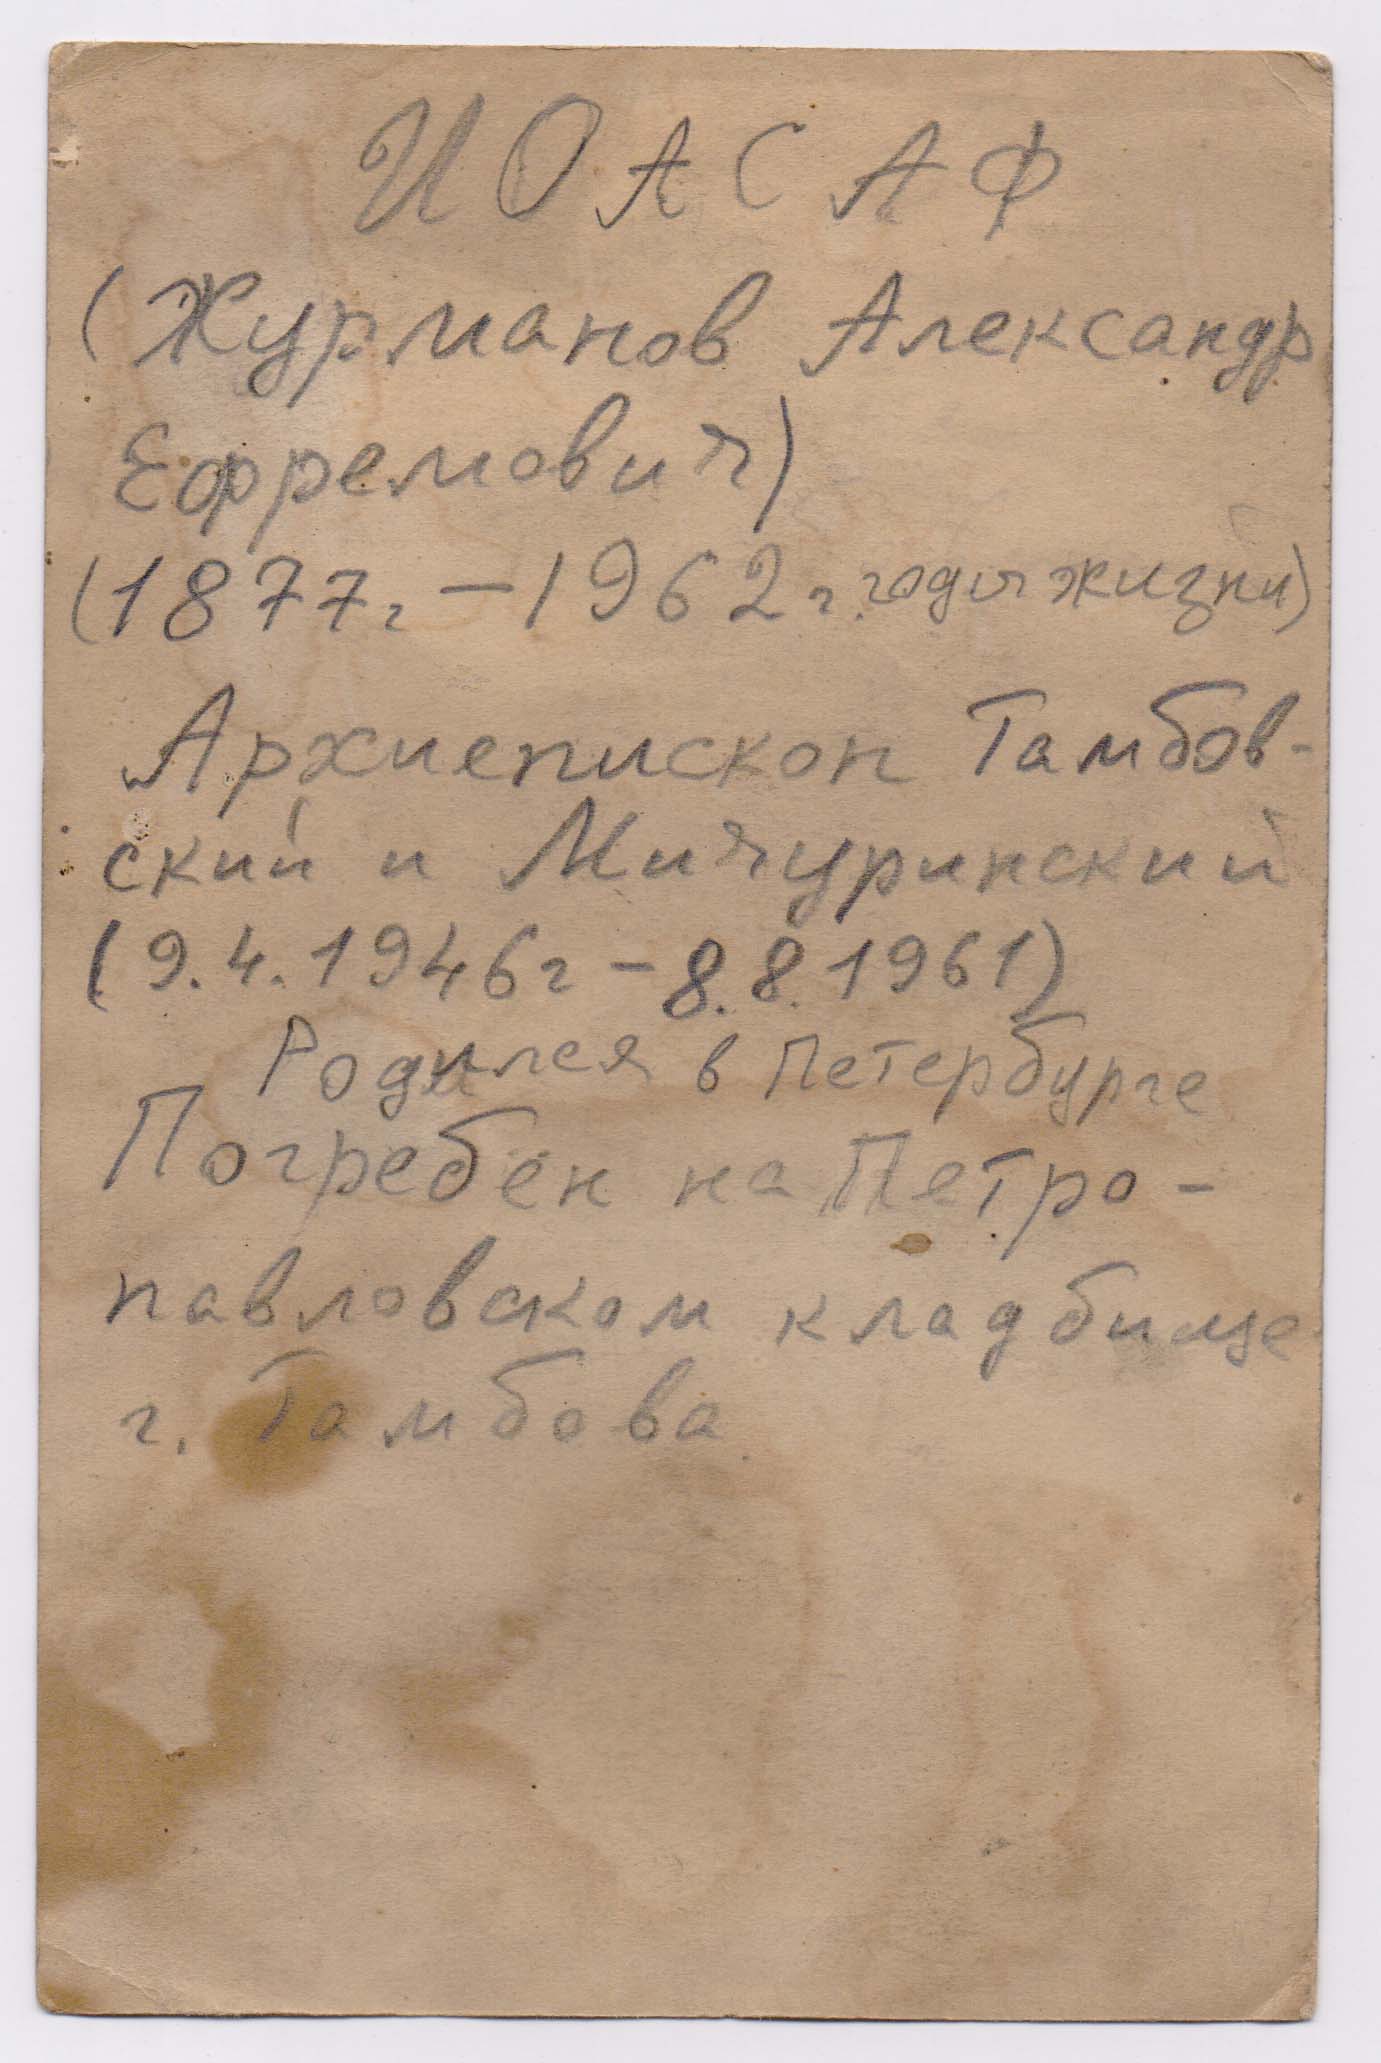 ИОАСАФ
(Журманов Александр
Ефремович)
(1877г – 1962 г. годы жизни)
Архиепископ Тамбов-
ский и Мичуринский
(9.4.1946г – 8.8.1961)
Родился в Петербурге
Погребен на Петро-
павловском кладбище
г. Тамбова